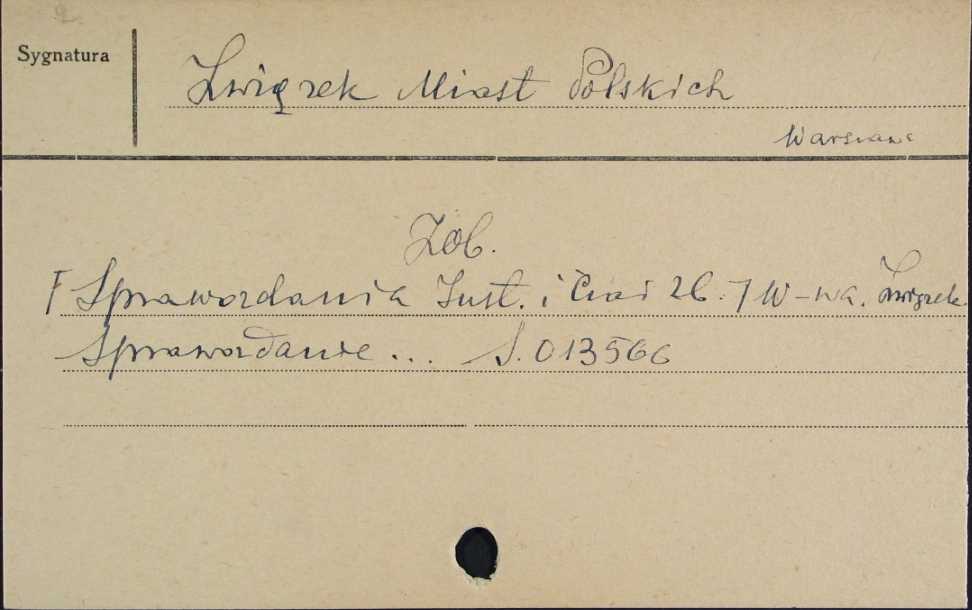 Sygnatura
Związek Miast Polskich
Warszawa
Zob.
Sprawozdania Inst. i 26. W-wa. Związek.
Sprawozdanie ... S. 013566